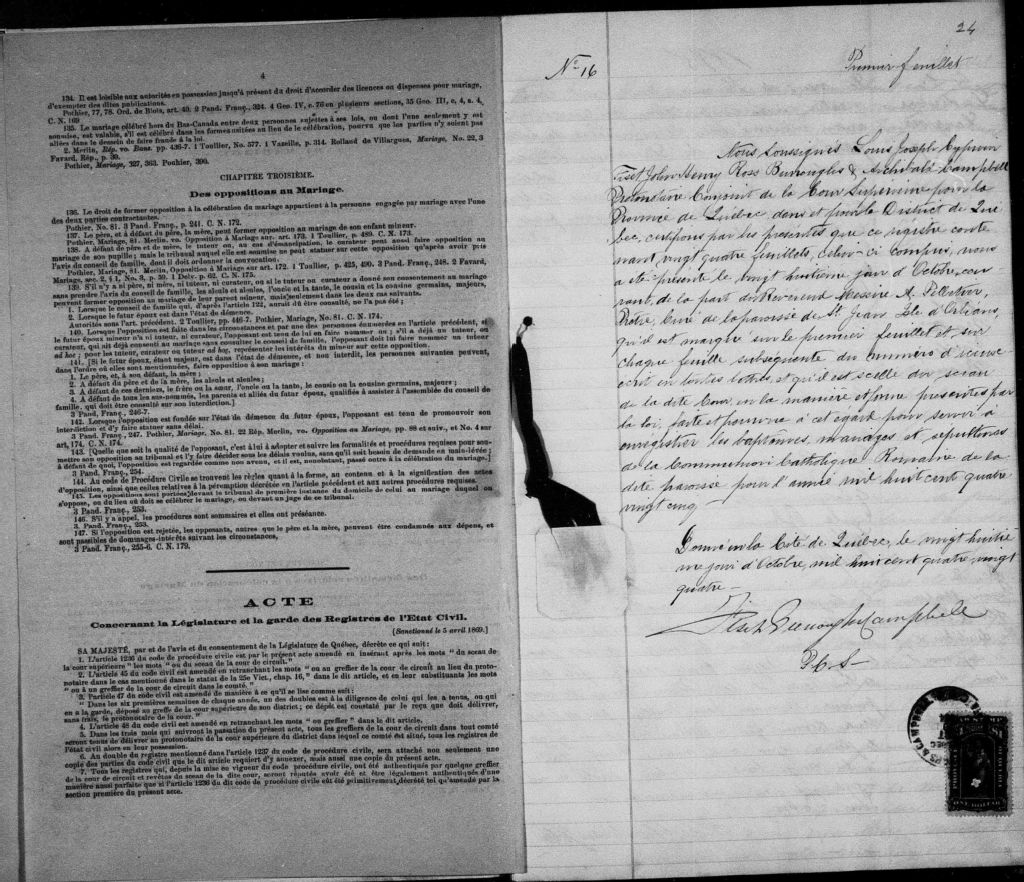 4
134. Il est loisible aux autorités en possession jusqu'à présent du droit d'accorder des licences ou dispenses pour mariage,
d'exempter des dites publications.
Pothier, 77, 78. Ord. de Blois, art. 40. 2 Pand. Franç., 324. 4 Geo. IV, c. 76 en plusieurs sections, 35 Geo. III, c, 4, s. 4.
C. N. 169
135. Le mariage célébré hors du Bas-Canada entre deux personnes sujettes à ses lois, ou dont l'une seulement y est
soumise, est valable, s'il est célébré dans les formes usitées au lieu de la célébration, pourvu que les parties n'y soient pas
allées dans le dessein de faire fraude à la loi.
2. Merlin, Rép. vo. Bans. pp. 436-7. 1 Toullier, No. 577. 1 Vazeille, p. 314 Rolland de Villargues, Mariage, No. 22, 3
Favard, Rép., p. 39.
Pothier, Mariage, 327, 363. Pouhier, 390.
CHAPITRE TROISIÈME.
Des oppositions au Mariage.
136. Le droit de former opposition à la célébration du mariage appartient à la personne engagée par mariage avec l'une
des deux parties contractantes.
Pothier, No. 81. 3 Pand. Franç., p. 241. C. N. 172.
137. Le père, et à défaut du père, la mère, peut former opposition au mariage de son enfant mineur.
Pothier, Mariage, 81. Merlin. vo. Opposition à Mariage sur art. 173. 1 Toullier, p. 489. C. N. 173.
138. A défaut de père et de mère, le tuteur ou, au cas d'émancipation, le curateur peut aussi faire opposition au
mariage de son pupille; mais le tribunal auquel elle est soumise ne peut statuer sur cette opposition qu'après avoir pris
l'avis du conseil de famille, dont il doit ordonner la convocation.
Pothier, Mariage, 81. Merlin, Opposition à Mariage sur art. 172. 1 Toullier, p. 425, 490. 3 Pand. Franç., 248. 2 Favard,
Mariage, sec. 2, § 1, No. 3, p. 59. 1 Delv. p. 62. C. N. 175.
139. S'il n'y a ni père, ni mère, ni tuteur, ni curateur, ou si le tuteur ou curateur a donné son consentement au mariage
sans prendre l'avis du conseil de famille, les aïeuls et aïeules, l'oncle et la tante, le cousin et la cousine germains, majeurs,
peuvent former opposition au mariage de leur parent mineur, mais seulement dans les deux cas suivants.
1. Lorsque le conseil de famille qui, d'après l'article 122, aurait dû être consulté, ne l'a pas été;
2. Lorsque le futur époux est dans l'état de démence.
Autorités sous l'art. précédent. 2 Toullier, pp. 446-7. Pothier, Mariage, No. 81. C. N. 174.
140. Lorsque l'opposition est faite dans les circonstances et par une des personnes énumérées en l'article précédent, si
le futur époux mineur n'a ni tuteur, ni curateur, l'opposant est tenu de lui en faire nommer un; s'il a déjà un tuteur, ou
curateur, qui ait déjà consenti au mariage sans consulter le conseil de famille, l'opposant doit lui faire nommer un tuteur
ad hoc; pour les tuteur, curateur ou tuteur ad hoc, représenter les intérêts du mineur sur cette opposition.
141. [Si le futur époux, étant majeur, est dans l'état de démence, et non interdit, les personnes suivantes peuvent,
dans l'ordre où elles sont mentionnées, faire opposition à son mariage:
1. Le père, et, à son défaut, la mère;
2. A défaut du père et de la mère, les aïeuls et aïeules;
3. A défaut de ces derniers, le frère ou la sœur, l'oncle ou la tante, le cousin ou la cousine germains, majeurs;
4. A défaut de tous les sus-nommés, les parents et alliés du futur époux, qualifiés à assister à l'assemblée du conseil de
famille, qui doit être consulté sur son interdiction.]
3 Pand. Franç., 246-7.
142. Lorsque l'opposition est fondée sur l'état de démence du futur époux, l'opposant est tenu de promouvoir son
interdiction et d'y faire statuer sans délai.
3 Pand. Franç., 247. Pothier, Mariage. No. 81. 22 Rép. Merlin, vo. Opposition au Mariage, pp. 88 et suiv., et No. 4 sur
art, 174. C. N. 174.
143. [Quelle que soit la qualité de l'opposant, c'est à lui à adopter et suivre les formalités et procédures requises pour sou-
mettre son opposition au tribunal et l'y faire décider sous les délais voulus, sans qu'il soit besoin de demande en main-levée;
à défaut de quoi, l'opposition est regardée comme non avenue, et il est, nonobstant, passé outre à la célébration du mariage.]
3 Pand. Franç., 254.
144. Au code de Procédure Civile se trouvent les règles quant à la forme, au contenu et à la signification des actes
d'opposition, ainsi que celles relatives à la péremption décrétée en l'article précédent et aux autres procédures requises.
145. Les oppositions sont portées devant le tribunal de première instance du domicile de celui au mariage duquel on
s'oppose, ou du lieu où doit se célébrer le mariage, ou devant un juge de ce tribunal.
3 Pand. Franç., 253.
146. S'il y a appel, les procédures sont sommaires et elles ont préséance.
3. Pand. Franç., 253.
147. Si l'opposition est rejetée, les opposants, autres que le père et la mère, peuvent être condamnés aux dépens, et
sont passibles de dommages-intérêts suivant les circonstances,
3 Pand. Franç., 255-6. C. N. 179.
ACTE
Concernant la Législature et la garde des Registres de l'Etat Civil.
[Sanctionné le 5 avril 1869.]
SA MAJESTÉ, par et de l'avis et du consentement de la Législature de Québec, décrète ce qui suit:
1. L'article 1236 du code de procédure civile est par le présent acte amendé en insérant après les mots "du sceau de
la cour supérieure" les mots "ou du sceau de la cour de circuit."
2. L'article 45 du code civil est amendé en retranchant les mots "ou au greffier de la cour de circuit au lieu du proto-
notaire dans le cas mentionné dans le statut de la 25e Vict., chap. 16," dans le dit article, et en leur substituants les mots
"ou à un greffier de la cour de circuit dans le comté."
3. l'article 47 du code civil est amendé de manière à ce qu'il se lise comme suit:
"Dans les six premières semaines de chaque année, un des doubles est à la diligence de celui qui les a tenus, ou qui
en a la garde, déposé au greffe de la cour supérieure de son district; ce dépôt est constaté par le reçu que doit délivrer,
sans frais, le protonotaire de la cour."
4. L'article 48 du code civil est amendé en retranchant les mots "ou greffier" dans le dit article.
5. Dans les trois mois qui suivront la passation du présent acte, tous les greffiers de la cour de circuit dans tout comté
seront tenus de délivrer au protonotaire de la cour supérieure du district dans lequel ce comté est situé, tous les registres de
l'état civil alors en leur possession.
6. Au double du registre mentionné dans l'article 1237 du code de procédure civile, sera attaché non seulement une
copie des parties du code civil que le dit article requiert d'y annexer, mais aussi une copie du présent acte.
7. Tous les registres qui, depuis la mise en vigueur du code procédure civile, ont été authentiqués par quelque greffier
de la cour de circuit et revêtus du sceau de la dite cour, seront réputés avoir été et être légalement authentiqués d'une
manière aussi parfaite que si l'article 1236 du dit code de procédure civile eût été primitivement décrété tel qu'amendé par la
section première du présent acte.
24
No 16
Premier feuillet
Nous soussignés Louis Joseph Cyprien
Fiset John Henry Ross Burroughs & Archibald Campbell
Protonotaire Conjoint de la Cour Supérieure pour la
Province de Québec dans et pour le District de Qué
bec, certifions par les présentes que ce registre conte
nant vingt quatre feuillets, celui-ci compris, nous
a été présenté le vingt huitième jour d'Octobre, cou
rant, de la part du Révérend Messire A. Pelletier,
Prêtre, Curé de la paroisse de St Jean Isle d'Orléans,
qu'il est marqué sur le premier feuillet et sur
chaque feuille subséquente du numéro d'icelle
écrit en toutes lettres, et qu'il est scellé du sceau
de la dite Cour, en la manière et forme prescrites par
la loi, faite et pourvue à cet égard pour servir à
enregistrer les baptêmes, mariages et sépultures
de la Communion Catholique Romaine de la
dite paroisse pour l'année mil huit cent quatre
vingt cinq
Donné en la Cité de Québec, le vingt huitiè
me jour d'Octobre, mil huit cent quatre-vingt
quatre—
Fiset Burroughs Campbell
P. C. S—
ONE DOLLAR